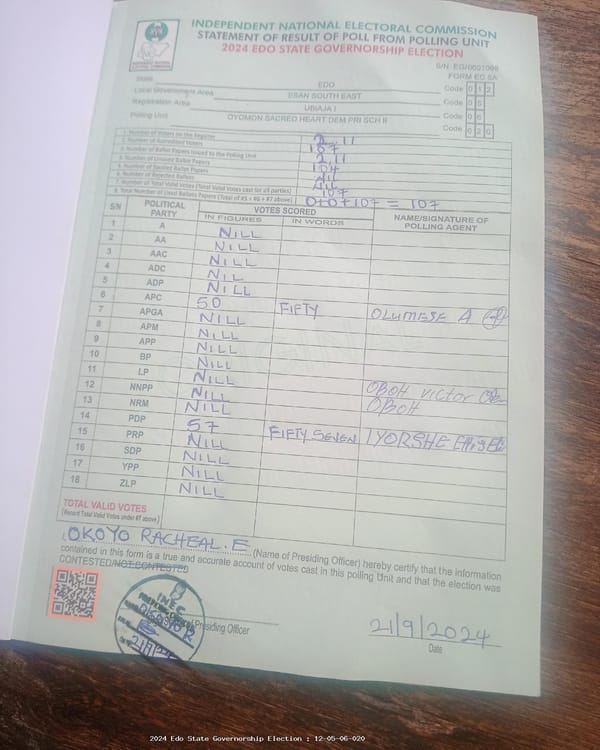 INDEPENDENT NATIONAL ELECTORAL COMMISSION
STATEMENT OF RESULT OF POLL FROM POLLING UNIT
2024 EDO STATE GOVERNORSHIP ELECTION
FORM EC 8A
State EDO Code 0 1 2
Local Government Area ESAN SOUTH EAST Code 0 5
Registration Area UBIAJA I Code 0 6
Polling Unit OYOMON SACRED HEART DEM PRI SCH II Code 0 2 0
1. Number of Voters on the Register 211
2. Number of Accredited Voters 107
3. Number of Ballot Papers Issued to the Polling Unit 211
4. Number of Unused Ballot Papers 104
5. Number of Spoiled Ballot Papers
6. Number of Rejected Ballots
7. Number of Total Valid Votes (Total Valid Votes cast for all parties) 107
8. Total Number of Used Ballots Papers (Total of #5 + #6 + #7 above) 0+0+107 = 107
SN POLITICAL PARTY VOTES SCORED NAME/SIGNATURE OF POLLING AGENT
IN FIGURES IN WORDS
1 A NILL
2 AA NILL
3 AAC NILL
4 ADC NIL
5 ADP NILL
6 APC 50 FIFTY OLUMESE A
7 APGA NILL
8 APM NILL
9 APP NILL
10 BP NILL
11 LP NILL OBOH victor
12 NNPP NILL OBOH
13 NRM NILL
14 PDP 57 FIFTY SEVEN IYORSHE
15 PRP NILL
16 SDP NILL
17 YPP NILL
18 ZLP NILL
TOTAL VALID VOTES
(Record Total Valid Votes under #7 above)
I, OKOYO RACHEAL. E (Name of Presiding Officer) hereby certify that the information
contained in this form is a true and accurate account of votes cast in this polling Unit and that the election was
CONTESTED/NOT CONTESTED
INEC
Presiding Officer
21/9/2024
Date
2024 Edo State Governorship Election : 12-05-06-020